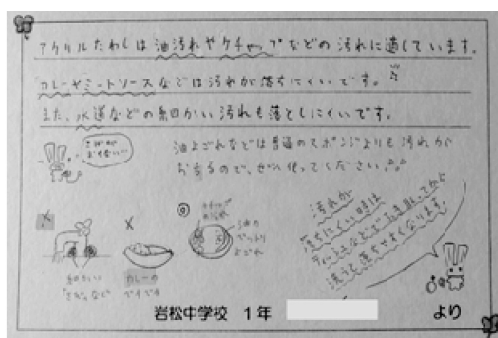 アクリルたわしは油汚れやケチャップなどの汚れに適しています。
カレーやミートソースなどは汚れが落ちにくいです。
また、水道などの細かい汚れも落としにくいです。
油よごれなどは普通のスポンジよりも汚れが
おちるので、ぜひ使ってください。
汚れが
落ちにくい時は
ティッシュなどで
洗うと落ちやすくなります。
カレーの
岩松中学校 1年
より